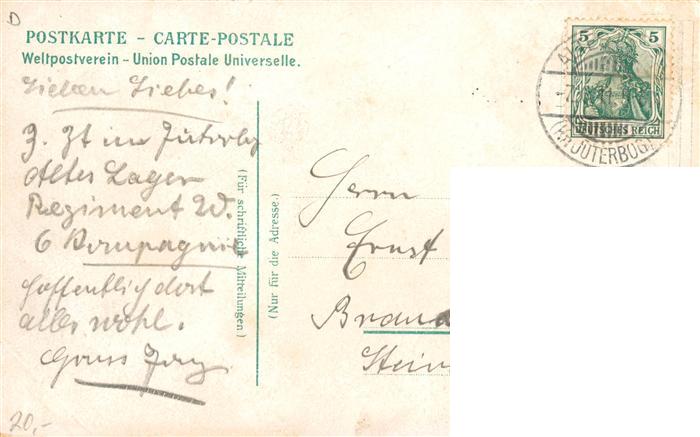 D
POSTKARTE - CARTE-POSTALE
Weltpostverein - Union Postale Universelle.
5 5
DEUTSCHES REICH
JÜTERBOG
Lieben Liebes!
Z. Zt im Jüterbog
Altes Lager
Regiment 20.
6 Kompagnie
hoffentlich dort
alles wohl.
Gruss
(Für schriftliche Mitteilungen.)
(Nur für die Adresse.)
Herrn
Ernst
Brand
Stein
20,-